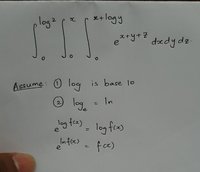 ∫₀^{log2} ∫₀^{x} ∫₀^{x+logy} e^{x+y+z} dx dy dz.
Assume: ① log is base 10
② logₑ = ln
e^{log f(x)} = log f(x)
e^{ln f(x)} = f(x)